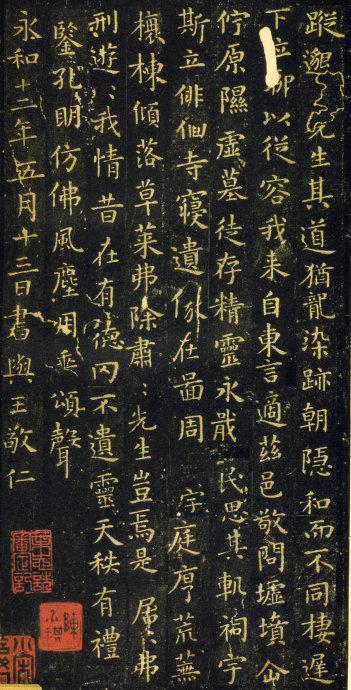 蹤邈〻先生其道猶龍染跡朝隱和而不同棲遲
下 聊以從容我来自東言適茲邑敬問墟墳企
佇原隰虛墓徒存精靈永戢民思其軌祠宇
斯立俳佪寺寢遺像在啚周 宇庭序荒蕪
榱棟傾落草萊弗除肅〻先生豈焉是居〻弗
刑遊〻我情昔在有德罔不遺靈天秩有禮
鍳孔明仿佛風塵用垂頌聲
永和十二年五月十三日書與王敬仁